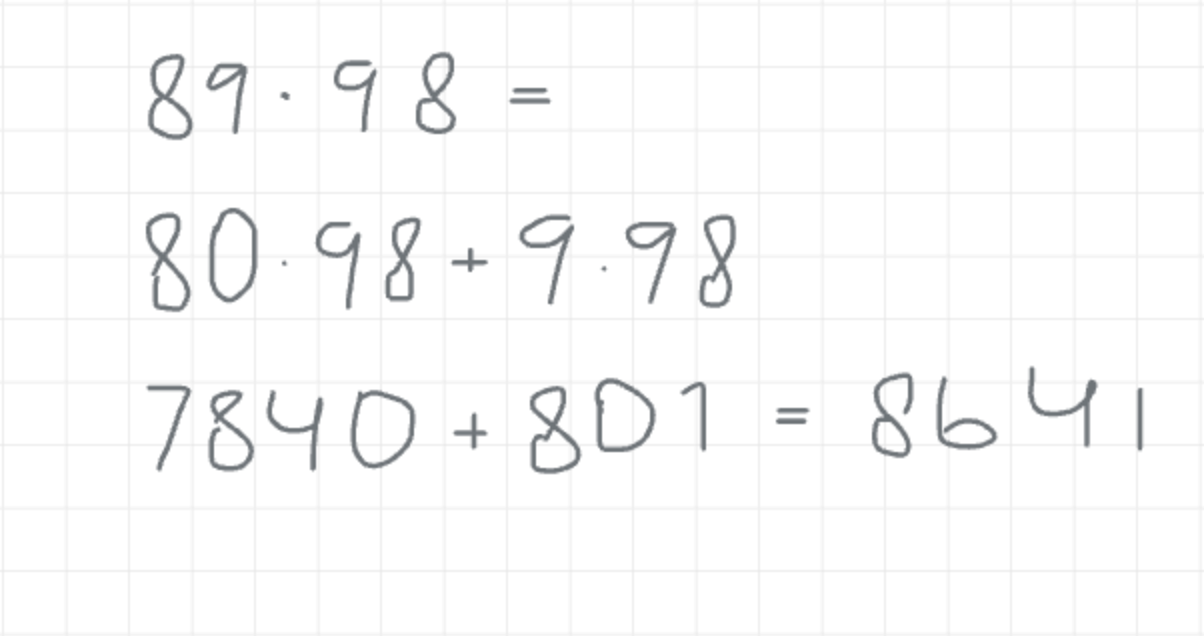 89·98=
80·98+9·98
7840+801=8641